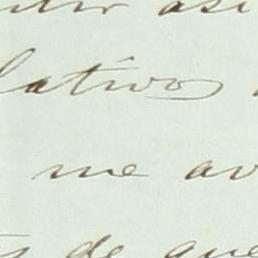 asi
lativos
me av
de que